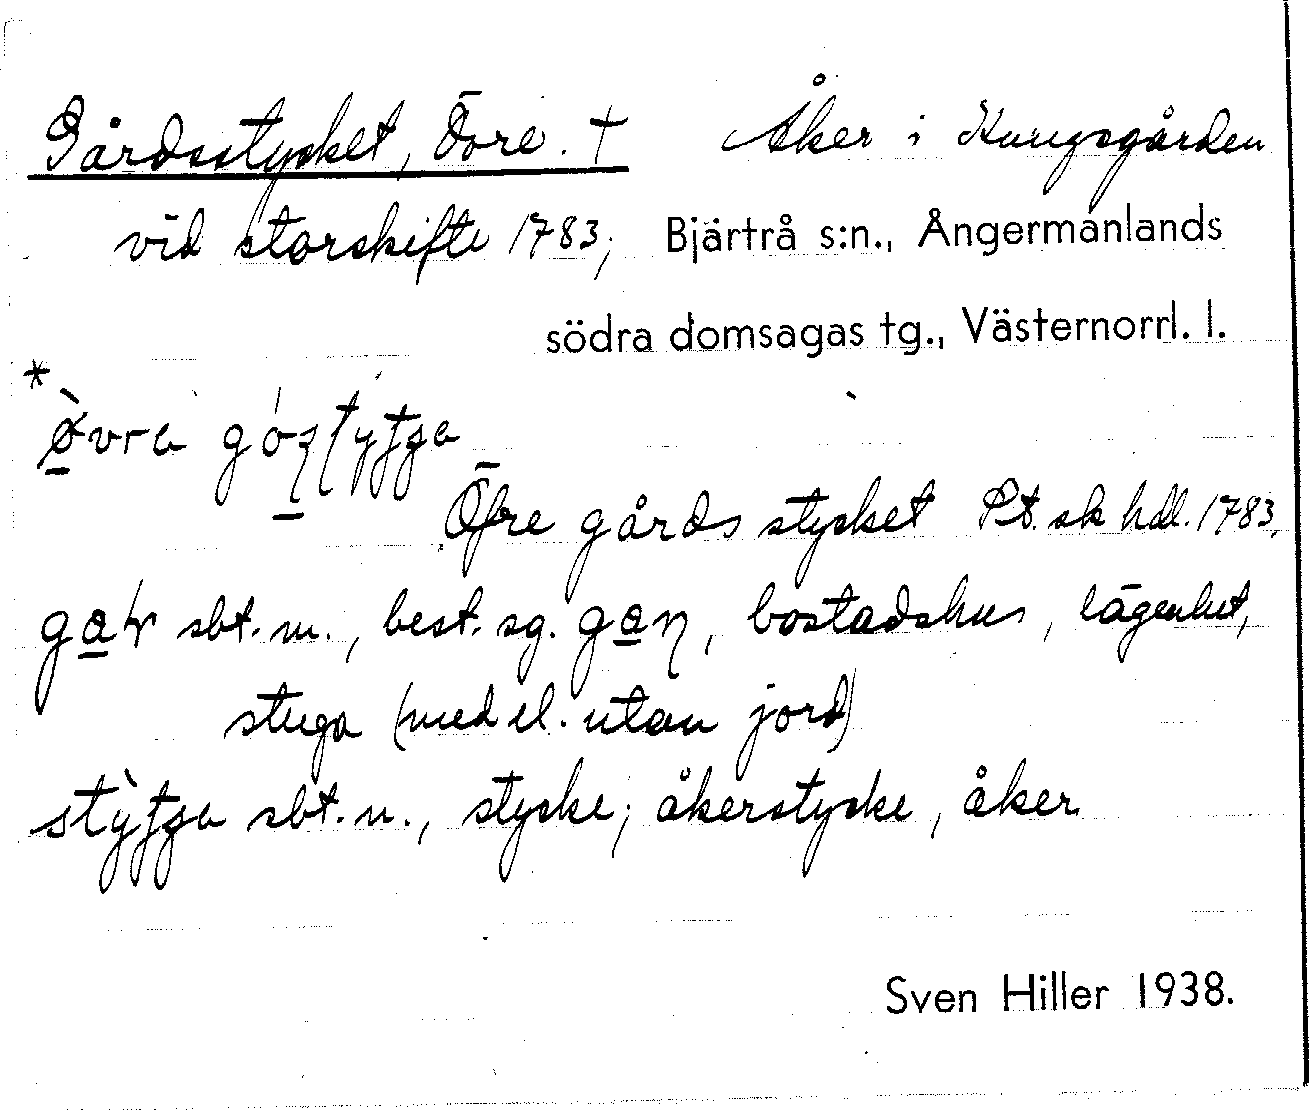 Gårdsstycket, Övre. † Åker i Kungsgården
vid storskifte 1783, Bjärtrå s:n., Ångermanlands
södra domsagas tg., Västernorrl. l.
*
Öfre gårds stycket Lt. sk hdl. 1783.
sbt. m., best. sg. bostadshus, lägenhet,
stuga (med el. utan jord)
sbt. n., stycke; åkerstycke, åker
Sven Hiller 1938.